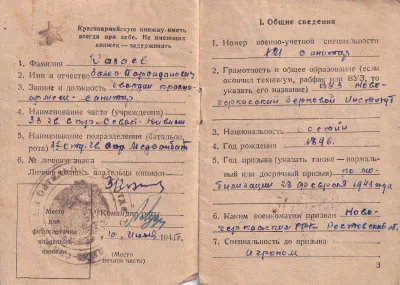 Красноармейскую книжку иметь
всегда при себе. Не имеющих
книжек — задерживать
1. Фамилия
2. Имя и отчество
3. Звание и должность гвардии красно-
армеец - санитар
4. Наименование части (учреждения)
5. Наименование подразделения (батальон,
рота)
6. № личного знака
Личная подпись владельца книжки
Место
для
фотокарточки
владельца
книжки
Командир роты
10 июня 1945 г.
(Место
печати части)
I. Общие сведения
1. Номер военно-учетной специальности
№ 21 санитар
2. Грамотность и общее образование (если
окончил техникум, рабфак или ВУЗ, то
указать его название) ВУЗ Ново-
черкасский Зерновой Институт
3. Национальность осетин
4. Год рождения 1896.
5. Год призыва (указать также — нормаль-
ный или досрочный призыв) по мо-
билизации 22 февраля 1943 года
6. Каким военкоматом призван Ново-
черкасский ГВК Ростовской об.
7. Специальность до призыва
агроном
3